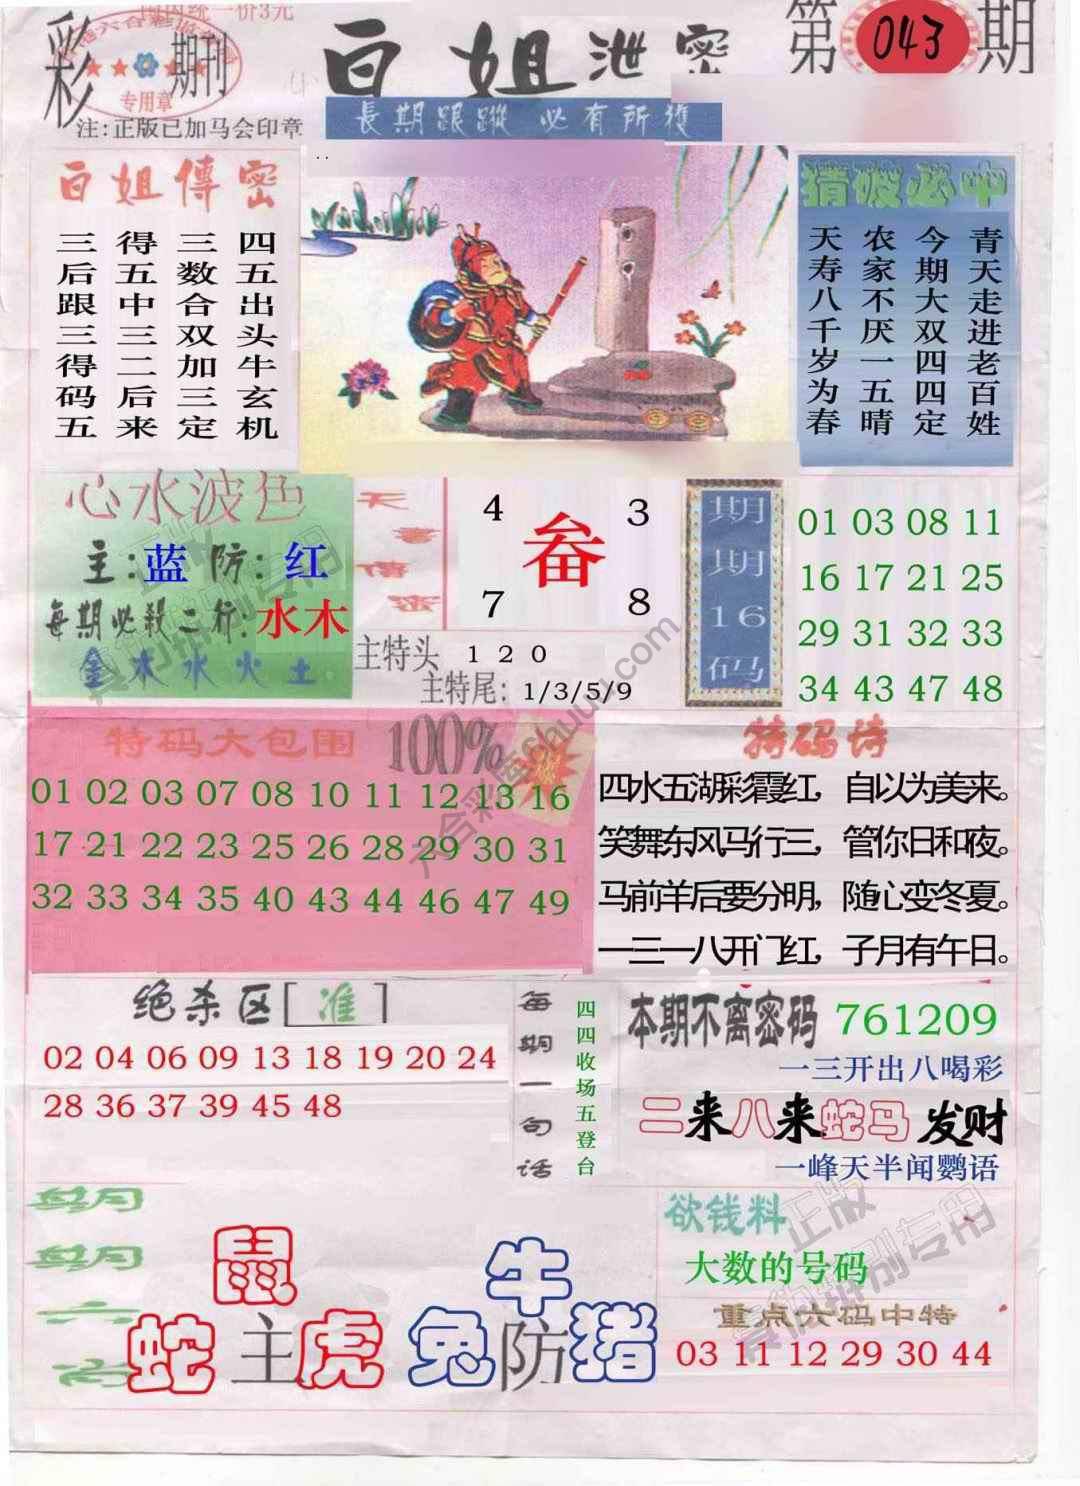 国内统一价3元
彩期刊
专用章
注:正版已加马会印章
白姐泄密
長期跟蹤 必有所獲
第043期
白姐傳密
四五出头牛玄机
三数合双加三定
得五中三二后来
三后跟三得码五
猜破必中
青天走进老百姓
今期大双四四定
农家不厌一五晴
天寿八千岁为春
心水波色
主:蓝 防:红
每期必殺二行:水木
金木水火土
天書傳密
4 3
畚
7 8
主特头 1 2 0
主特尾: 1/3/5/9
期期16码
01 03 08 11
16 17 21 25
29 31 32 33
34 43 47 48
特码大包围 100%
01 02 03 07 08 10 11 12 13 16
17 21 22 23 25 26 28 29 30 31
32 33 34 35 40 43 44 46 47 49
特码诗
四水五湖彩霞红，自以为美来。
笑舞东风马行三，管你日和夜。
马前羊后要分明，随心变冬夏。
一三一八开门红，子月有午日。
绝杀区[准]
02 04 06 09 13 18 19 20 24
28 36 37 39 45 48
每期一句话
四四收场五登台
本期不离密码 761209
一三开出八喝彩
二来八来蛇马发财
一峰天半闻鹦语
鼠
蛇主虎
牛
兔防猪
欲钱料
大数的号码
重点六码中特
03 11 12 29 30 44
正版
六合彩库
chuuu.com